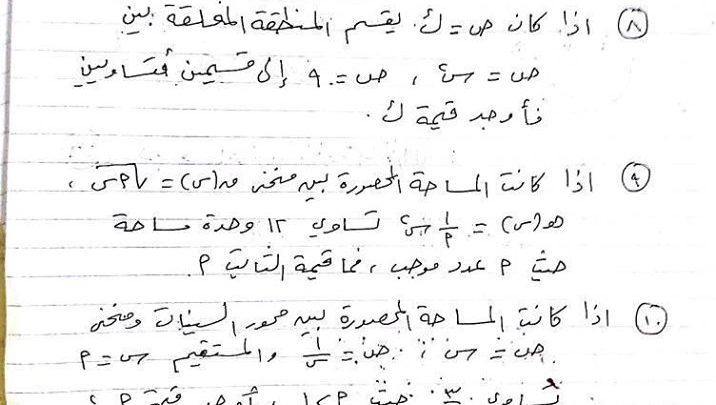 ٨ اذا كان ص = ك يقسم المنطقة المغلقة بين
ص = س² ، ص = ٩ إلى قسمين متساويين
فأوجد قيمة ك .
٩ اذا كانت المساحة المحصورة بين منحنى م(س) = √م س ،
هـ(س) = ١/م س² تساوي ١٢ وحدة مساحة
حيث م عدد موجب ، فما قيمة الثابت م
١٠ اذا كانت المساحة المحصورة بين محور السينات ومنحنى
ص = س ، ص = ١/س والمستقيم س = م
تساوي ٣ حيث م > ١ ، أوجد قيمة م ؟